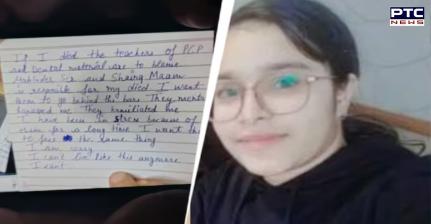 PTC
NEWS
If I died the teachers of PCP
and Dental material are to blame
Sir and Maam
is responsible for my died I want
them to go behind the bars They
me They humiliated me
I have been in stress because of
for a long time I want
to the same thing
I am sorry
I can't live like this anymore
I cant